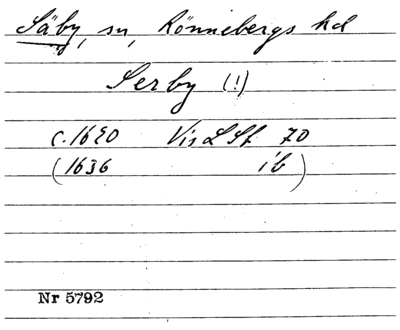 Säby, sn, Rönnebergs hd
Serby (!)
c. 1620 VisLSk 70
(1636 ib)
Nr 5792